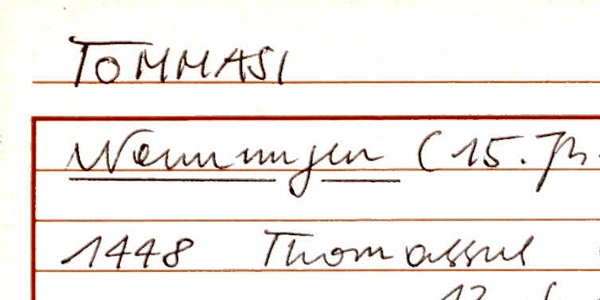 TOMMASI
Nennungen (15. Jh.
1448 Thomassul
12